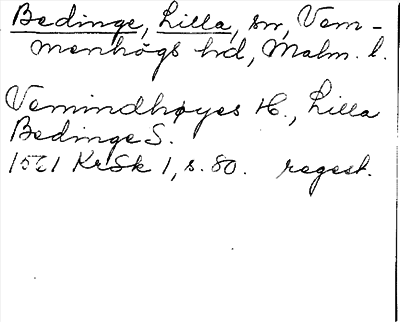 Bedinge, Lilla, sn, Vem-
menhögs hd, Malm. l.
Vemindhøyes H., Lilla
Bedinge S.
1521 KrSk 1, s. 80. regest.